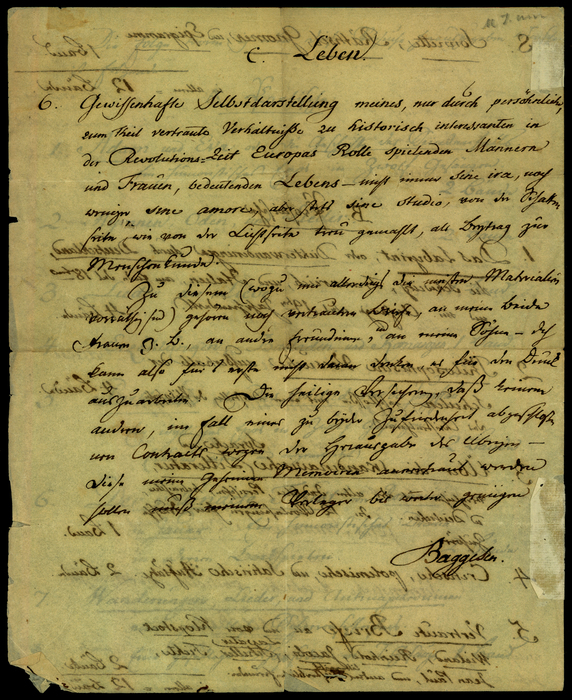 C. Leben.
6. Gewissenhafte Selbstdarstellung meines, nur durch persönliche,
zum Theil vertraute Verhältniße zu historisch interessanten in
der Revolutions-Zeit Europas Rolle spielenden Männern
und Frauen, bedeutenden Lebens – nicht immer sine ira, noch
weniger sine amore, aber stets sine studio, von der Schatten-
seite, wie von der Lichtseite treu gemahlt, als Beytrag zur
Menschenkunde.
Zu diesem (wozu mir allerdings die meisten Materialien
vorräthig sind) gehören noch vertraute Briefe an meine beide
Frauen z. B., an andre Freundinnen, an meine Söhne – das
kann also für's erste nicht daran denken es für den Druck
auszuarbeiten. Die heilige Versicherung, daß keinem
andern, im Fall eines zu beyder Zufriedenheit abgeschloßenen
Contracts wegen der Herausgabe des Übrigen –
diese meine Memoiren anvertraut werden
sollen, muß meinem Verleger bis weiter genügen
Baggesen.